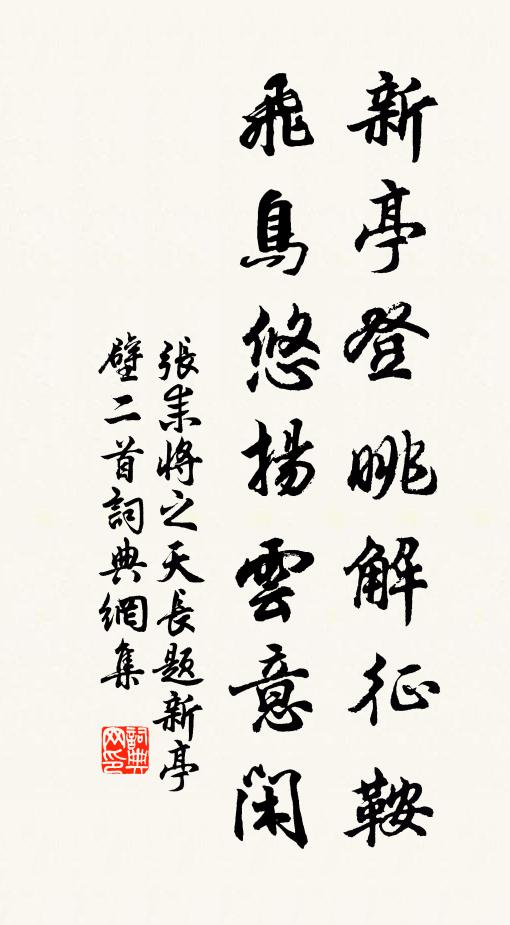 新亭登眺解征鞍
飛鳥悠揚雲意閑
張耒將之天長題新亭
壁二首詞典網集
詞典網印